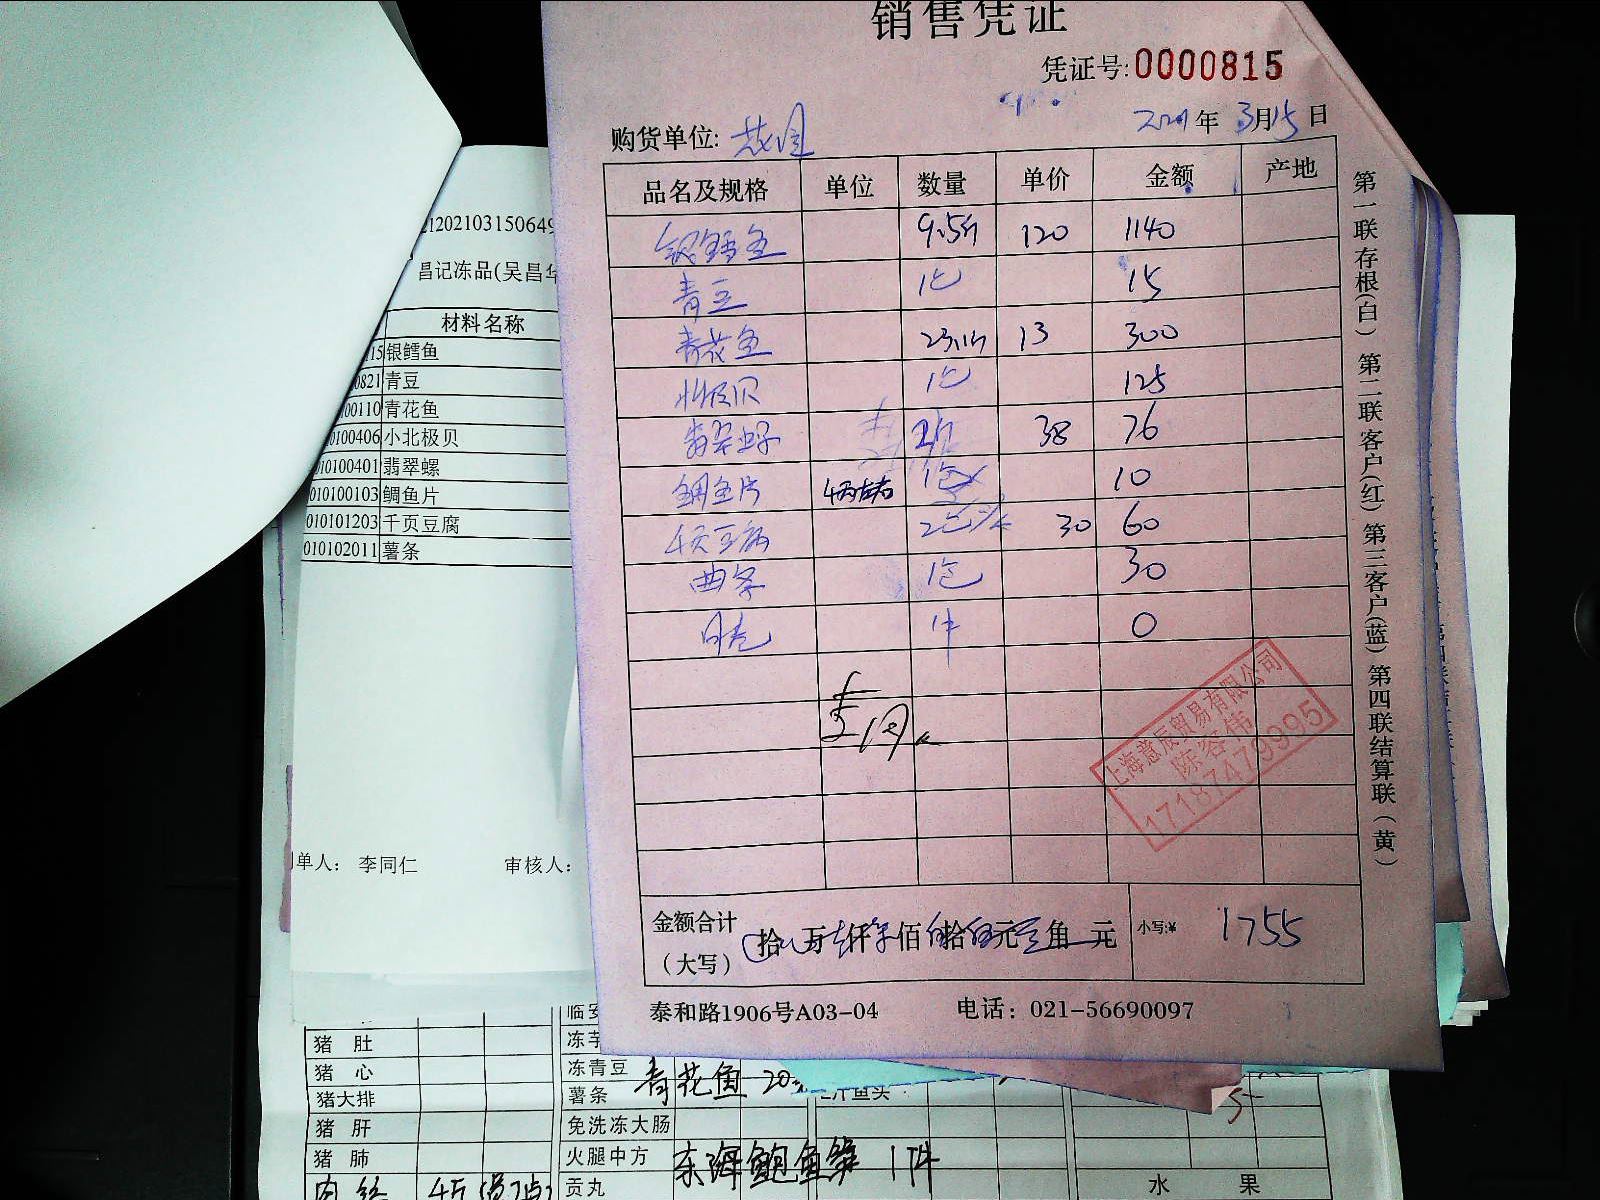 销售凭证
凭证号:0000815
2021年3月15日
购货单位:
品名及规格 单位 数量 单价 金额 产地
银鳕鱼 9.5斤 120 1140
青豆 1包 15
青花鱼 23.1斤 13 300
北极贝 1包 125
翡翠螺 2斤 38 76
鲷鱼片 4两左右 1包 10
千页豆腐 2包 30 60
曲条 1包 30
1件 0
李同仁
上海意辰贸易有限公司
17187479995
金额合计
(大写)
拾 万 仟 佰 拾 元 角 元
小写:¥ 1755
泰和路1906号A03-04 电话: 021-56690097
第一联存根(白) 第二联客户(红) 第三客户(蓝) 第四联结算联(黄)
2120210315064
昌记冻品(吴昌华
材料名称
15 银鳕鱼
0821 青豆
00110 青花鱼
0100406 小北极贝
010100401 翡翠螺
010100103 鲷鱼片
010101203 千页豆腐
010102011 薯条
单人: 李同仁 审核人:
猪 肚
猪 心
猪大排
猪 肝
猪 肺
肉丝 4斤
临安
冻芋
冻青豆
薯条
免洗冻大肠
火腿中方
贡丸
青花鱼 20
东海鲍鱼 1件
斤鱼头
5
水 果